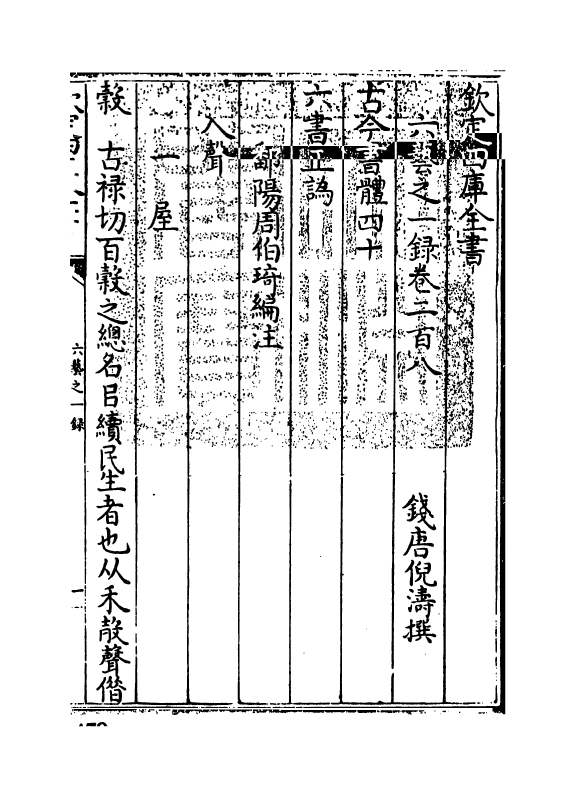 欽定四庫全書
六藝之一錄卷二百八
錢唐倪濤撰
古今書體四十
六書正譌
鄱陽周伯琦編注
入聲
一屋
穀 古禄切百穀之總名㠯續民生者也从禾㱿聲偕
六藝之一錄
一